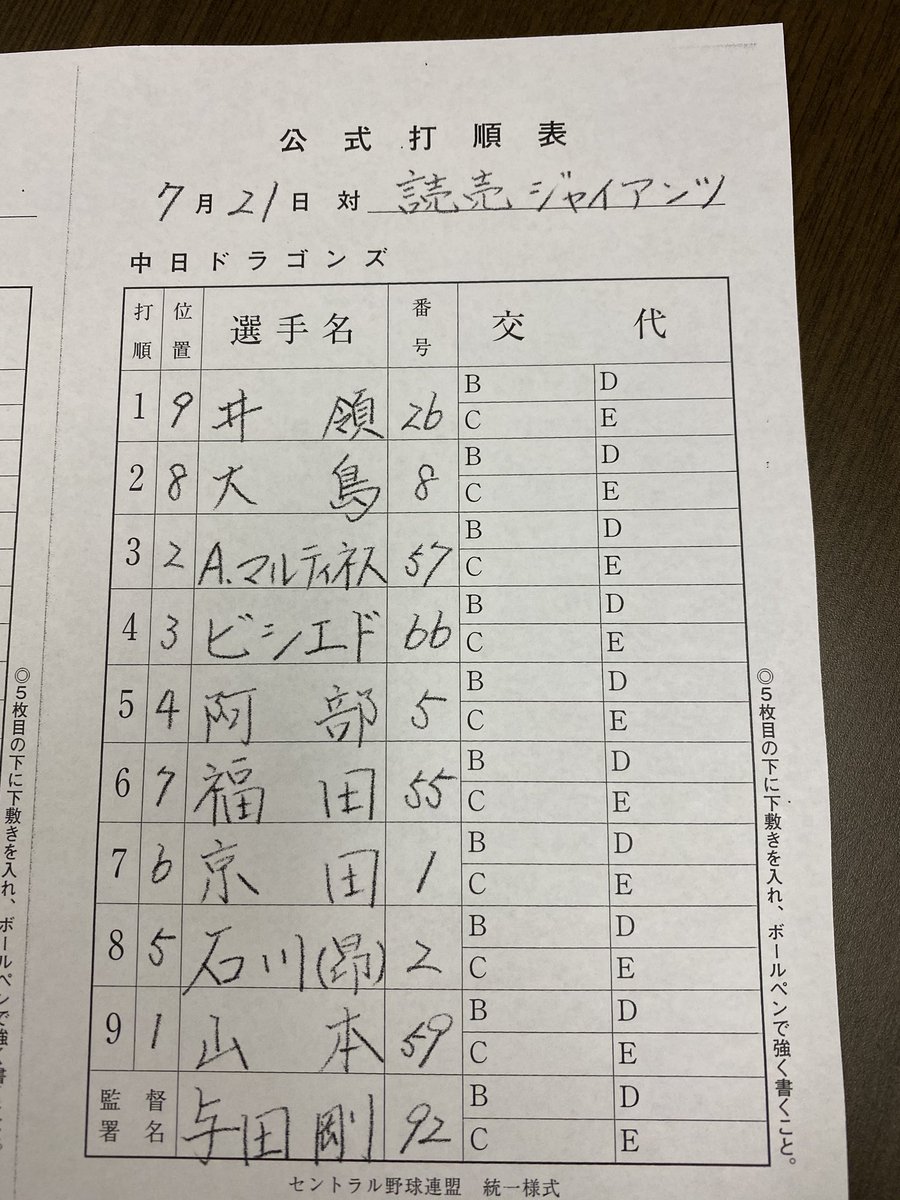 公式打順表
7月21日 対 読売ジャイアンツ
中日ドラゴンズ
打順 位置 選手名 番号 交代
1 9 井領 26 B D C E
2 8 大島 8 B D C E
3 2 A.マルティネス 57 B D C E
4 3 ビシエド 66 B D C E
5 4 阿部 5 B D C E
6 7 福田 55 B D C E
7 6 京田 1 B D C E
8 5 石川(昂) 2 B D C E
9 1 山本 59 B D C E
監督署名 与田剛 92 B D C E
セントラル野球連盟 統一様式
◎5枚目の下に下敷きを入れ、ボールペンで強く書くこと。
◎5枚目の下に下敷きを入れ、ボールペンで強く書